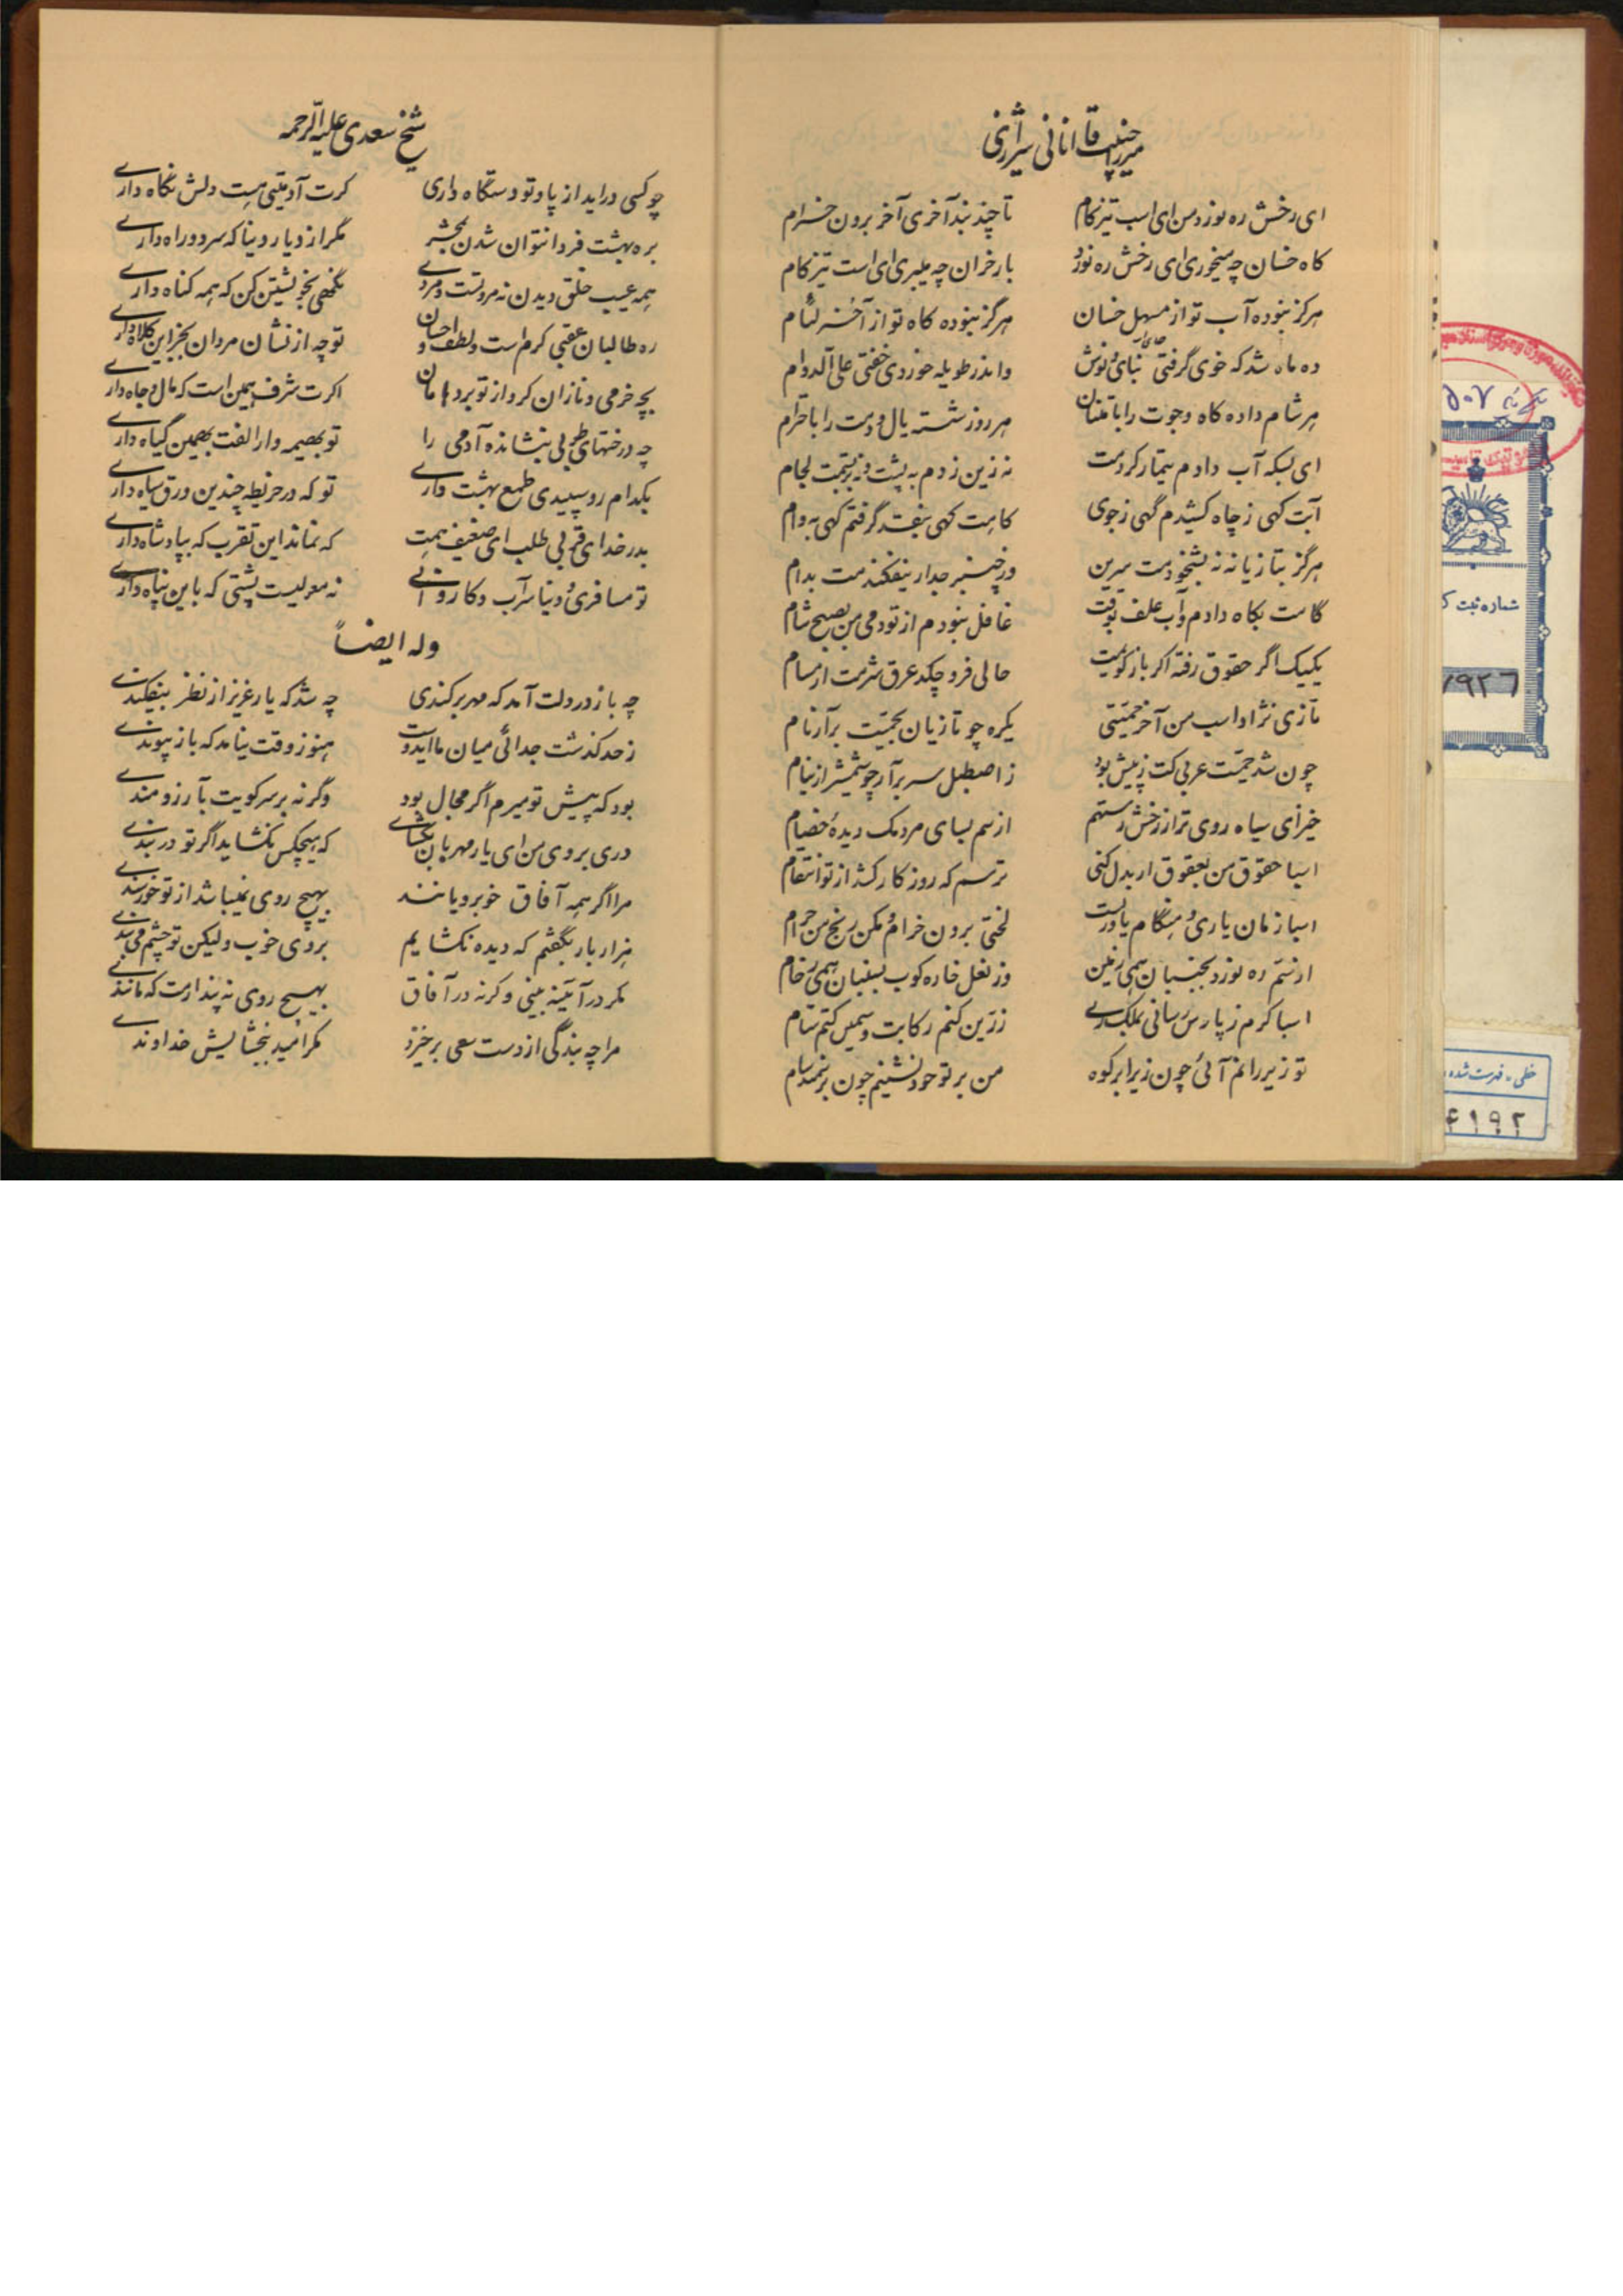 میرزا حبیب قاآنی شیرازی
ای رخش ره نورد من ای اسب تیزکام تا چند بند آخری آخر برون خرام
کاه خسان چه میخوری ای رخش ره نورد بار خران چه میبری ای اسب تیزکام
هرگز نبوده آب تو از منهل خسان هرگز نبوده کاه تو از آخر لئام
ده ماه شد که خوی گرفتی بنای و نوش واندر طویله خوردی خفتی علی الدوام
هر شام داده کاه و جوت را بامتنان هر روز شسته یال و دمت را باحترام
ای بسکه آب دادم تیمار کردمت نه زین زدم به پشت و نه بربستمت لجام
آبت کهی ز چاه کشیدم گهی ز جوی کاهت کهی بنقد گرفتم کهی به وام
هرگز بتازیانه نشخودمت سرین وز خنبر جدار نیفکندمت بدام
گاهت بکاه دادم و آب علف بوقت غافل نبودم از تو دمی من بصبح شام
یکیک اگر حقوق رفته اگر بازگویمت حالی فرو چکد عرق شرمت از مسام
تازی نژاد اسب من آخر حمیتی یکره چو تازیان بحمیت برآر نام
چون شد حمیت عربی کت ز پیش بود ز اصطبل سر برآر چو شمشیر از نیام
خیز ای سیاه روی تر از رخش رستهم از سم بسای مردمک دیدهٔ خصام
اسبا حقوق من بعقوق ار بدل کنی ترسم که روزکار کشد از تو انتقام
اسبا زمان یاری و هنگام یاوریست لختی برون خرام و مکن رنج من حرام
از سم ره نورد بجنبان همی زمین وز نعل خاره کوب بسنبان همی رخام
اسبا کرم ز پارس رسانی بملک ری زرین کنم رکابت و سیمین کنم ستام
تو زیر رانم آئی چون زیر ابر کوه من بر تو خود نشینم چون بر سمند سام
شیخ سعدی علیه الرحمه
چو کسی دراید از پا و تو دستگاه داری کرت آدمیتی هست دلش نگاه داری
بره بهشت فردا نتوان شدن بمحشر مگر از دیار دنیا که سر دوراه داری
همه عیب خلق دیدن نه مروتست و مردی نگهی بخویشتن کن که همه کناه داری
ره طالبان عقبی کرم است و لطف و احسان تو چه از نشان مردان بجز این کلاه داری
بچه خرمی و نازان کرو از تو برد هامان اکرت شرف همین است که مال و جاه داری
چه درختهای طوبی بنشانده آدمی را تو بهیمه وار الفت بهمین گیاه داری
بکدام روسپیدی طمع بهشت داری تو که در خریطه چندین ورق سیاه داری
بدر خدای قربی طلب ای ضعیف همت که نماند این تقرب که بپادشاه داری
تو مسافری و دنیا سر آب و کاروانی نه معولیست پشتی که باین پناه داری
وله ایضاً
چه باز در دلت آمد که مهر برکندی چه شد که یار عزیز از نظر بیفکندی
ز حد کذشت جدائی میان ما ایدوست هنوز وقت نیامد که باز پیوندی
بود که پیش تو میرم اگر مجال بود وگرنه بر سر کویت بآرزومندی
دری بروی من ای یار مهربان بکشای که هیچکس نکشاید اگر تو در بندی
مرا اگر همه آفاق خوبرویانند بهیچ روی نمیباشد از تو خورسندی
هزار بار بگفتم که دیده نکشایم بروی خوب ولیکن تو چشم میبندی
مکر در آئینه بینی وکرنه در آفاق بهیچ روی نه پندارمت که مانندی
مرا چه بندگی از دست سعی برخیزد مکر امید ببخشایش خداوندی
شماره ثبت ک
۹۲٦
خطی - فهرست شده
۴۱۹۲